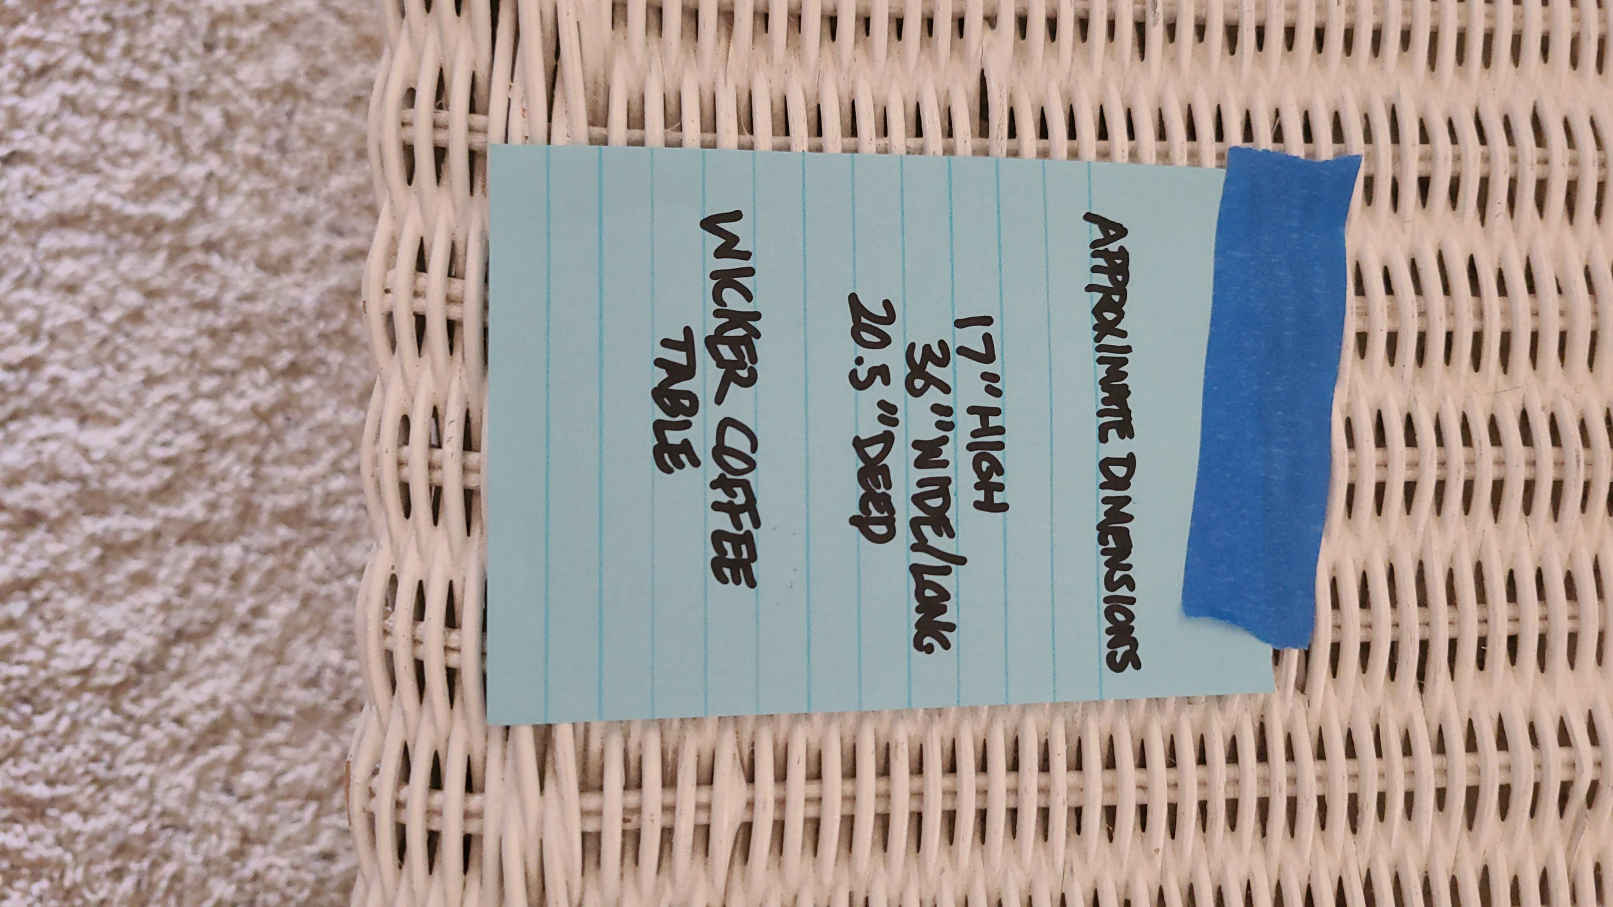 APPROXIMATE DIMENSIONS
17" HIGH
36" WIDE/LONG
20.5" DEEP
WICKER COFFEE
TABLE